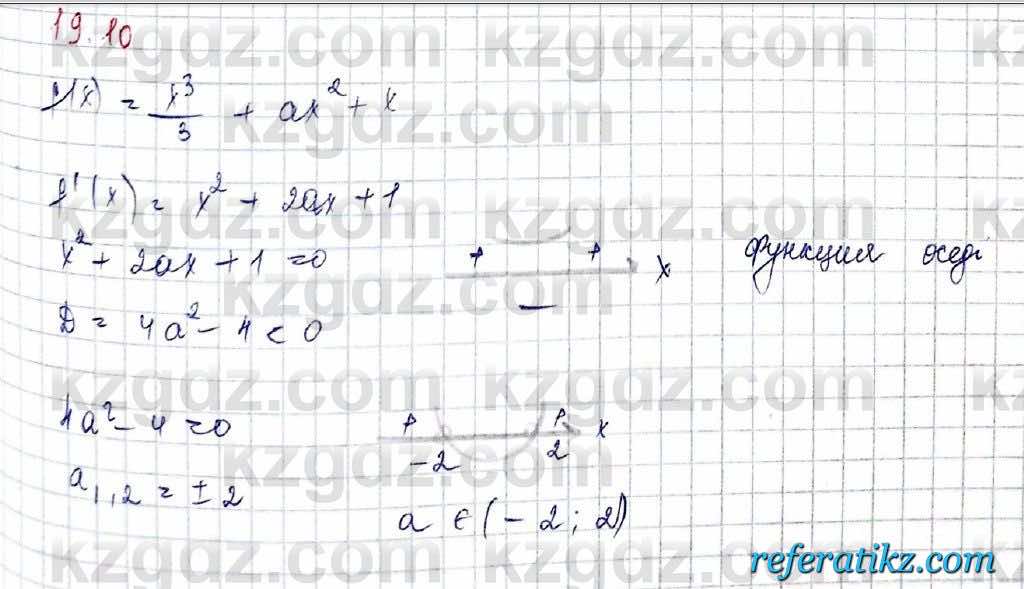 19.10
f(x) = x³/3 + ax² + x
f'(x) = x² + 2ax + 1
x² + 2ax + 1 = 0
+ + x
−
функция өседі
D = 4a² - 4 < 0
4a² - 4 = 0
+ + x
-2 2
a₁,₂ = ± 2
a ∈ (-2; 2)
kzgdz.com kzgdz.com kzgdz.com
kzgdz.com
kzgdz.com kzgdz.com kzgdz.com
kzgdz.com
kzgdz.com kzgdz.com kzgdz.com
kzgdz.com
kzgdz.com
referatikz.com